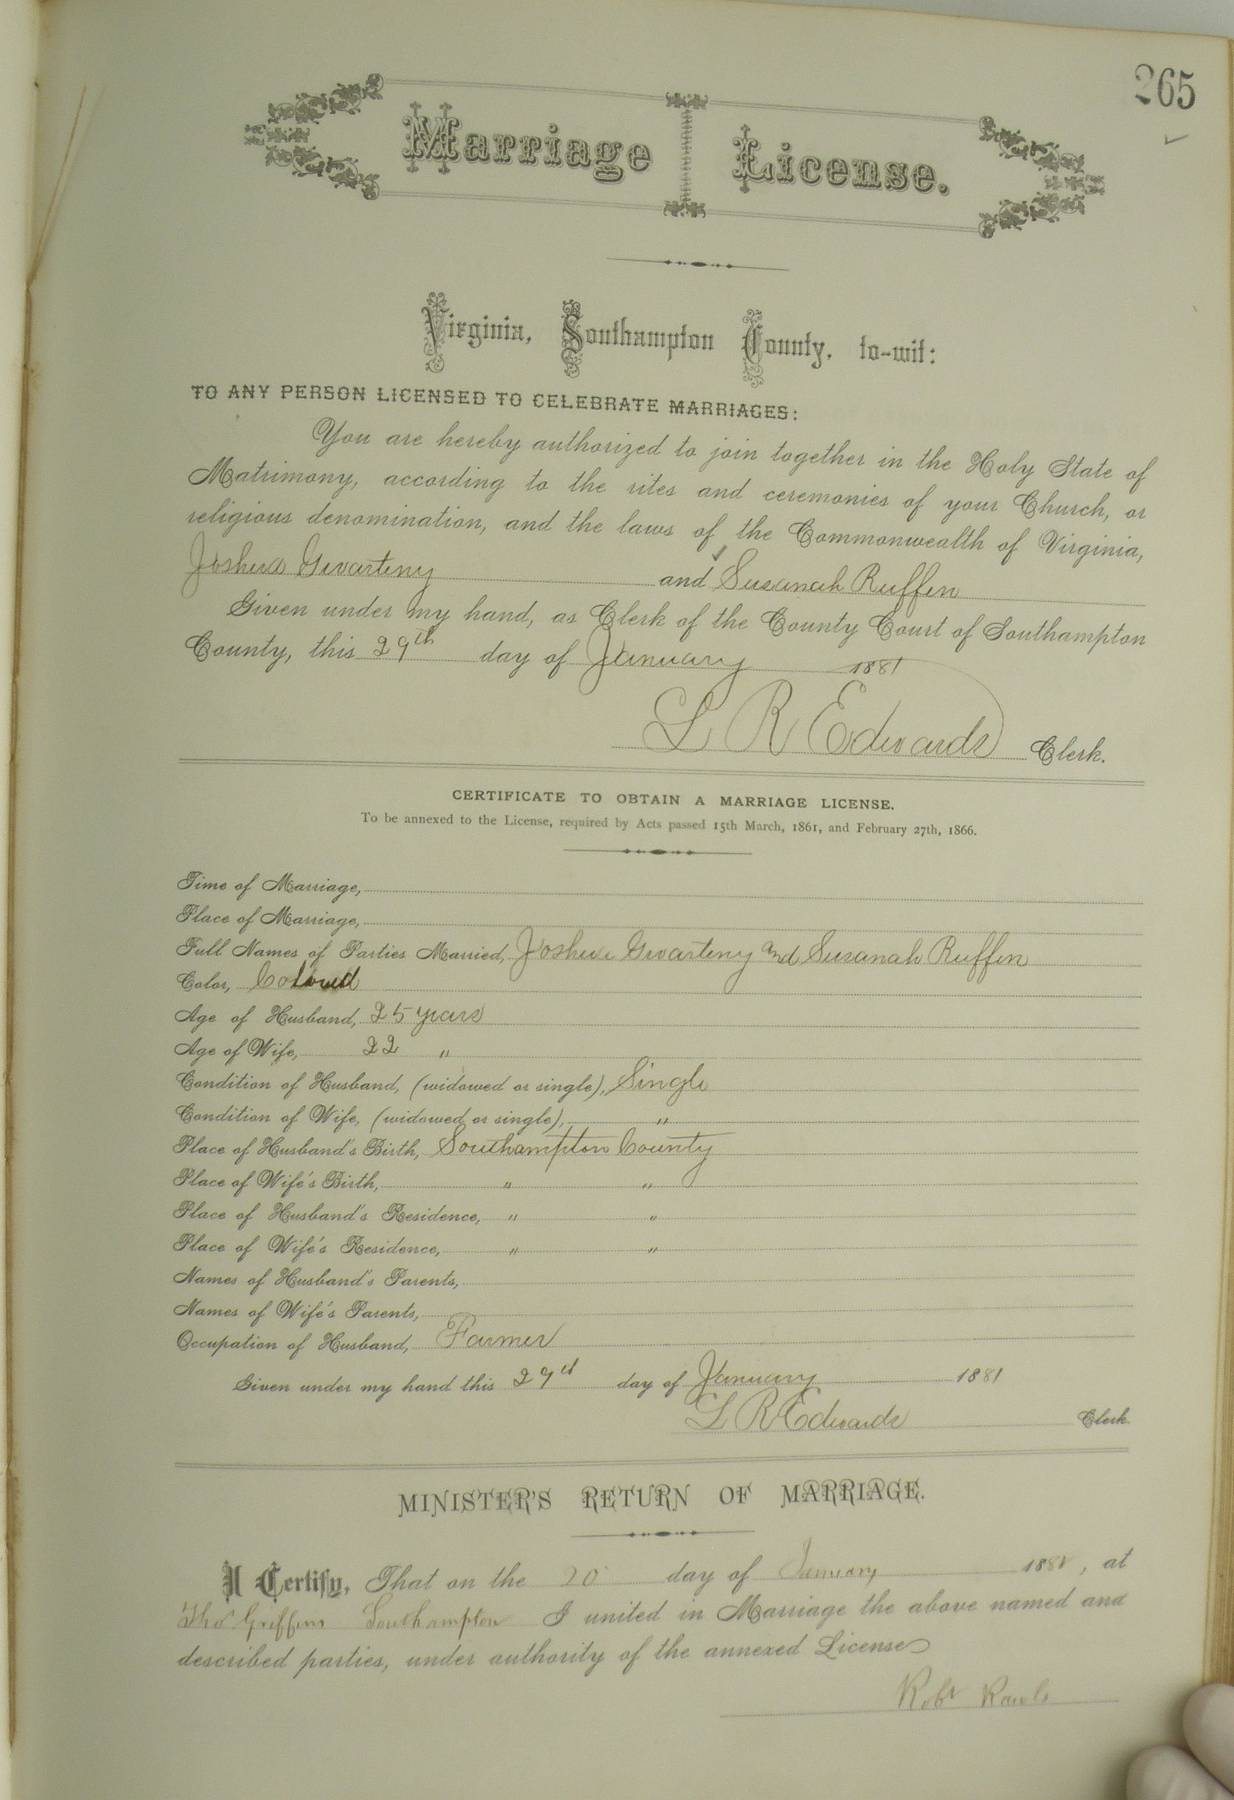 265
Marriage License.
Virginia, Southampton County, to-wit:
TO ANY PERSON LICENSED TO CELEBRATE MARRIAGES:
You are hereby authorized to join together in the Holy State of
Matrimony, according to the rites and ceremonies of your Church, or
religious denomination, and the laws of the Commonwealth of Virginia,
Joshua Gwarteny and Susanah Ruffin
Given under my hand, as Clerk of the County Court of Southampton
County, this 29th day of January 1881
L R Edwards Clerk.
CERTIFICATE TO OBTAIN A MARRIAGE LICENSE.
To be annexed to the License, required by Acts passed 15th March, 1861, and February 27th, 1866.
Time of Marriage,
Place of Marriage,
Full Names of Parties Married, Joshua Gwarteny and Susanah Ruffin
Color, Colored
Age of Husband, 25 years
Age of Wife, 22 "
Condition of Husband, (widowed or single), Single
Condition of Wife, (widowed or single), "
Place of Husband's Birth, Southampton County
Place of Wife's Birth, " "
Place of Husband's Residence, " "
Place of Wife's Residence, " "
Names of Husband's Parents,
Names of Wife's Parents,
Occupation of Husband, Farmer
Given under my hand this 29th day of January 1881
L R Edwards Clerk
MINISTER'S RETURN OF MARRIAGE.
I Certify, That on the day of January 188 , at
Thos Griffins Southampton I united in Marriage the above named and
described parties, under authority of the annexed License
Robt Rawls